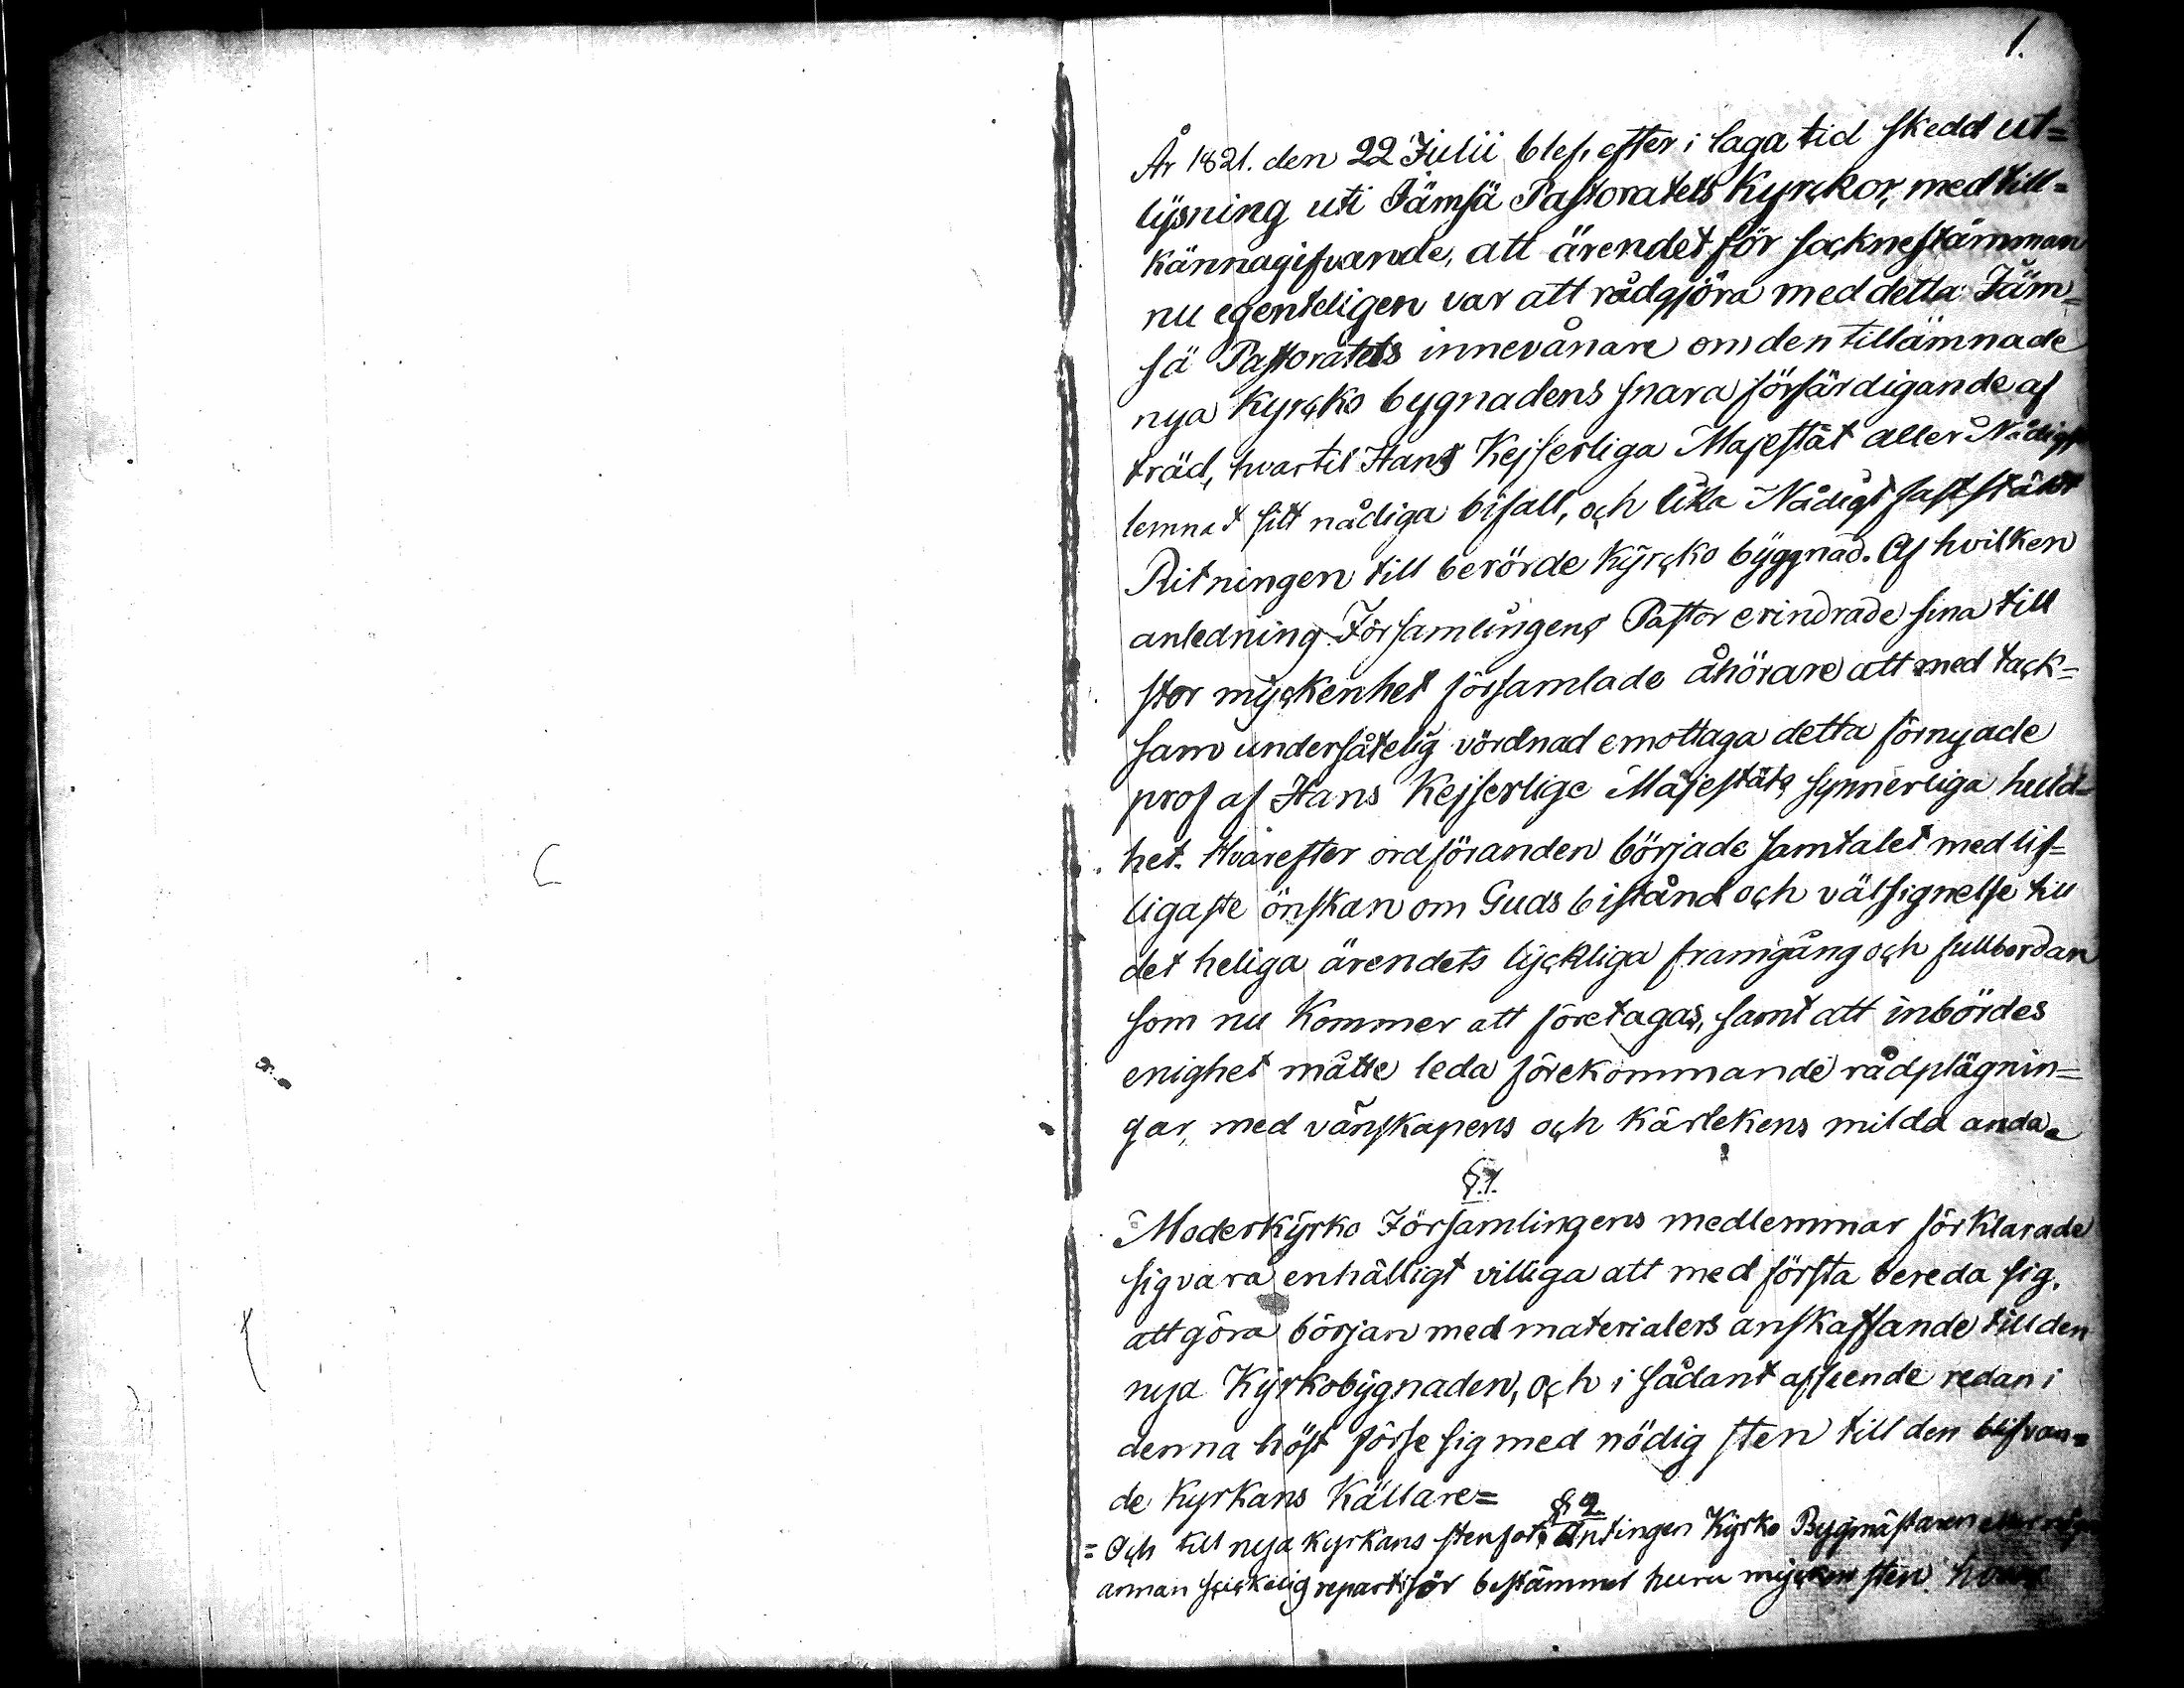 1.
År 1821. den 22 Julii blef, efter i laga tid skedd ut=
lysning uti Jämsä Pastoratets Kyrckor, med till=
kännagifvande, att ärendet för socknestämman
nu egenteligen var att rådgjöra med detta Jäm=
sä Pastoratets innevånare om den tillämnade
nya Kyrcko bygnadens snara förfärdigande af
träd, hvartil Hans Kejserliga Majestät aller Nådigst
lemnat sitt nådiga bifall, och lika Nådigt fastställt
Ritningen till berörde Kyrcko byggnad. Af hvilken
anledning Församlingens Pastor erindrade sina till
stor myckenhet församlade åhörare att med tack=
sam undersåtelig vördnad emottaga detta förnyade
prof af Hans Kejserlige Majestäts synnerliga huld=
het. Hvarefter ordföranden började samtalet med lif=
ligaste önskan om Guds bistånd och välsignelse till
det heliga ärendets lyckliga framgång och fullbordan
som nu Kommer att företagas, samt att inbördes
enighet måtte leda förekommande rådplägnin=
gar, med vänskapens och Kärlekens milda anda.
§.1.
Moderkyrko Församlingens medlemmar förklarade
sig vara enhälligt villiga att med första bereda sig,
att göra början med materialers anskaffande till den
nya Kyrkobygnaden, och i sådant afseende redan i
denna höst förse sig med nödig sten till den blifvan=
de Kyrkans Källare=
§ 2.
= Och till nya kyrkans stenfot, Antingen Kyrko Bygmästaren eller
annan skickelig repartisör bestämmer huru mycken sten hvar